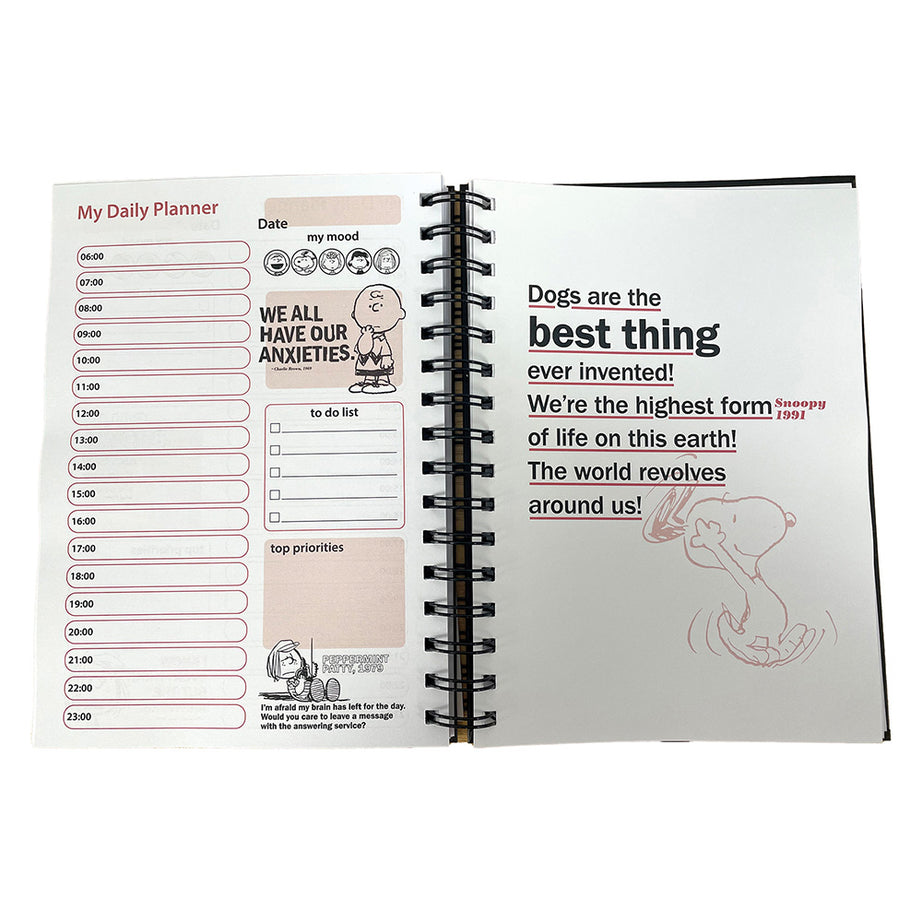 My Daily Planner
06:00
07:00
08:00
09:00
10:00
11:00
12:00
13:00
14:00
15:00
16:00
17:00
18:00
19:00
20:00
21:00
22:00
23:00
Date
my mood
WE ALL
HAVE OUR
ANXIETIES.
- Charlie Brown, 1969
to do list
top priorities
PEPPERMINT
PATTY, 1979
I'm afraid my brain has left for the day.
Would you care to leave a message
with the answering service?
Dogs are the
best thing
ever invented!
We're the highest form
Snoopy
1991
of life on this earth!
The world revolves
around us!